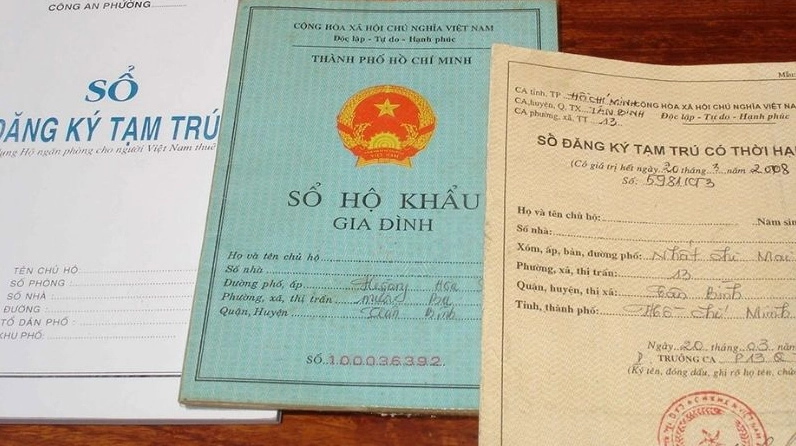 CÔNG AN PHƯỜNG
SỔ
ĐĂNG KÝ TẠM TRÚ
dụng Hộ ngăn phòng cho người Việt Nam thuê
TÊN CHỦ HỘ
SỐ PHÒNG
SỐ NHÀ
ĐƯỜNG
TỔ DÂN PHỐ
KHU PHỐ
CỘNG HÒA XÃ HỘI CHỦ NGHĨA VIỆT NAM
Độc lập - Tự do - Hạnh phúc
THÀNH PHỐ HỒ CHÍ MINH
SỔ HỘ KHẨU
GIA ĐÌNH
Họ và tên chủ hộ
Số nhà
Đường phố, ấp
Phường, xã, thị trấn
Quận, Huyện Tân Bình
SỐ 100036392
Mẫu
CA tỉnh, TP HỒ CHÍ MINH
CA huyện, Q, TX TÂN BÌNH
CA phường, xã, TT 13
CỘNG HÒA XÃ HỘI CHỦ NGHĨA VIỆT NAM
Độc lập - Tự do - Hạnh phúc
SỔ ĐĂNG KÝ TẠM TRÚ CÓ THỜI HẠ
(Có giá trị hết ngày 20 tháng 3 năm 2008
Số:
Họ và tên chủ hộ: Năm sin
Số nhà:
Xóm, ấp, bản, đường phố: Nhất Chi Mai
Phường, xã, thị trấn: 13
Quận, huyện, thị xã: Tân Bình
Tỉnh, thành phố: Hồ Chí Minh
Ngày 20 tháng 03 năm
TRƯỞNG CA P13 Q
(Ký tên, đóng dấu, ghi rõ họ tên, chức